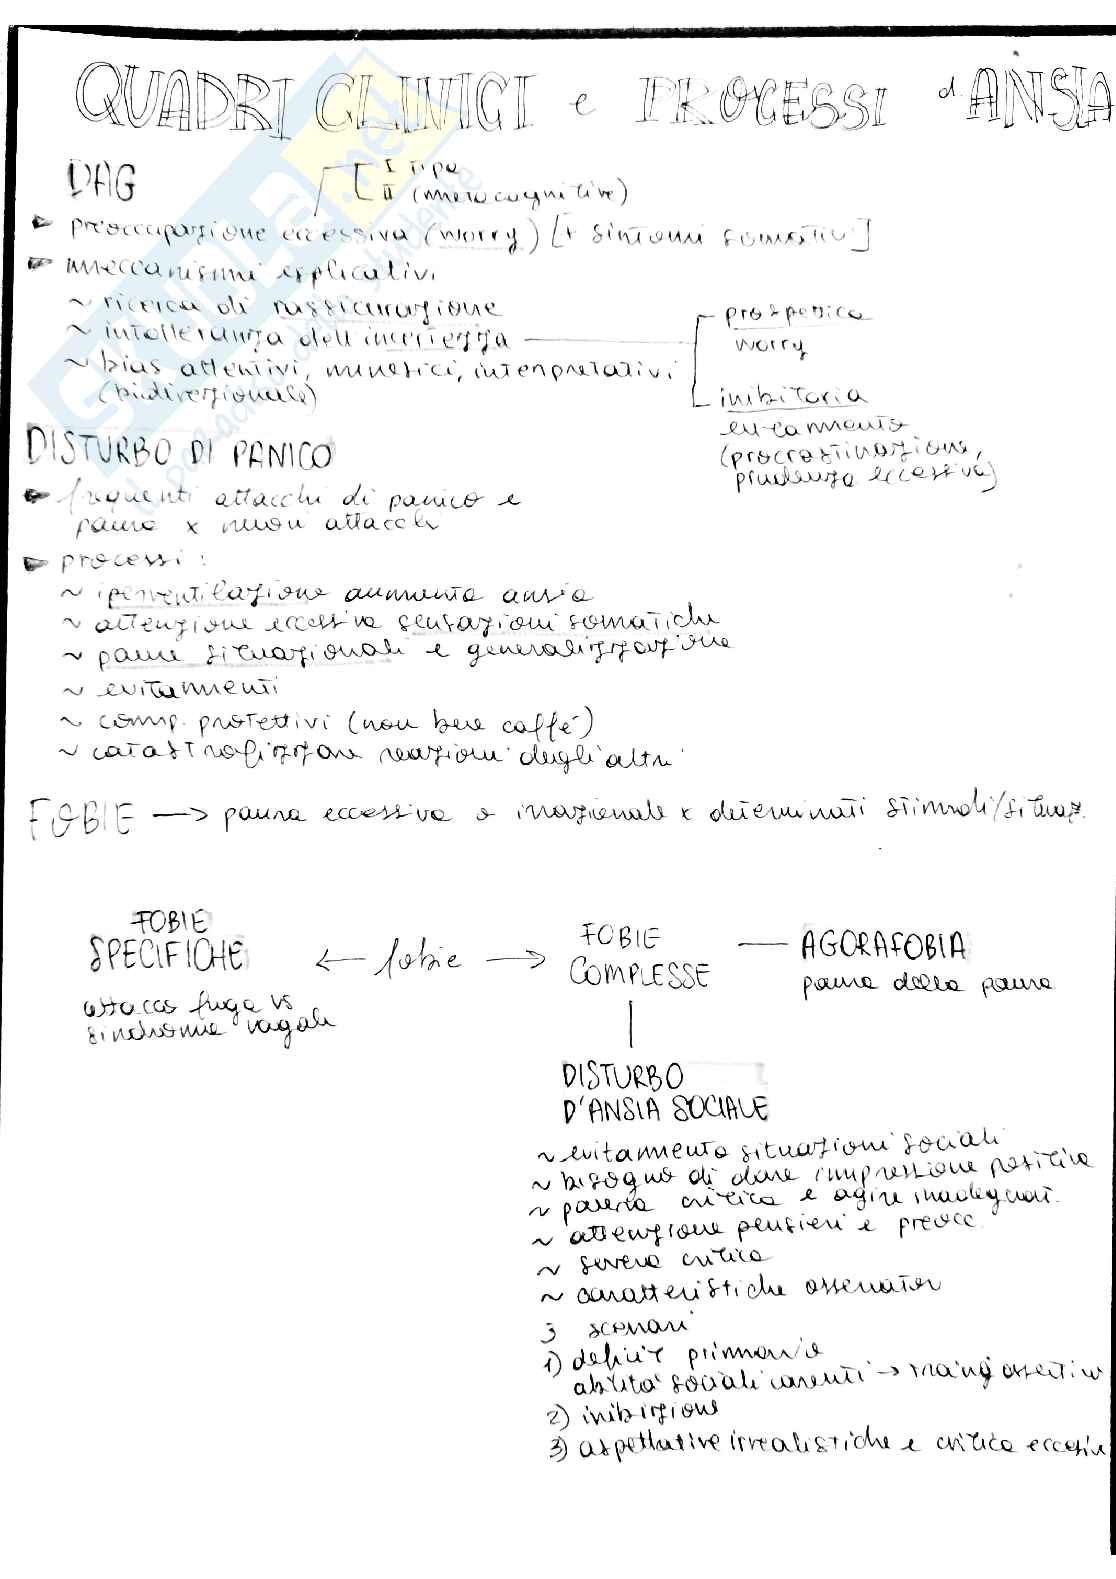 QUADRI CLINICI e PROCESSI d'ANSIA
DAG
I Tipo
II (metacognitive)
preoccupazione eccessiva (worry) [+ sintomi somatici]
meccanismi esplicativi
~ ricerca di rassicurazione
~ intolleranza dell'incertezza
~ bias attentivi, mnesici, interpretativi
(bidirezionale)
prospettica
worry
inibitoria
evitamento
(procrastinazione,
prudenza eccessiva)
DISTURBO DI PANICO
frequenti attacchi di panico e
paura x nuovi attacchi
processi:
~ iperventilazione aumenta ansia
~ attenzione eccessiva sensazioni somatiche
~ paure situazionali e generalizzazione
~ evitamenti
~ comp. protettivi (non bere caffè)
~ catastrofizzare reazioni degli altri
FOBIE → paura eccessiva o irrazionale x determinati stimoli/situaz.
FOBIE
SPECIFICHE
← fobie →
FOBIE
COMPLESSE
— AGORAFOBIA
paura della paura
attacco fuga vs
sindrome vagale
DISTURBO
D'ANSIA SOCIALE
~ evitamento situazioni sociali
~ bisogno di dare impressione positiva
~ paura critica e agire inadeguat.
~ attenzione pensieri e preocc.
~ severa critica
~ caratteristiche osservator
3 scenari
1) deficit primario
abilità sociali carenti → assertivo
2) inibizione
3) aspettative irrealistiche e critica eccessiva
SKUOLA.net